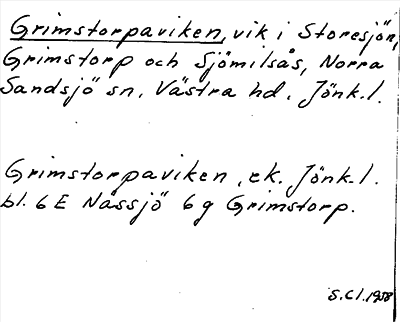 Grimstorpaviken, vik i Storesjön,
Grimstorp och Sjömilsås, Norra
Sandsjö sn. Västra hd. Jönk.l.
Grimstorpaviken, ek. Jönk.l.
bl. 6 E Nässjö 6 g Grimstorp.
S.Cl. 1958